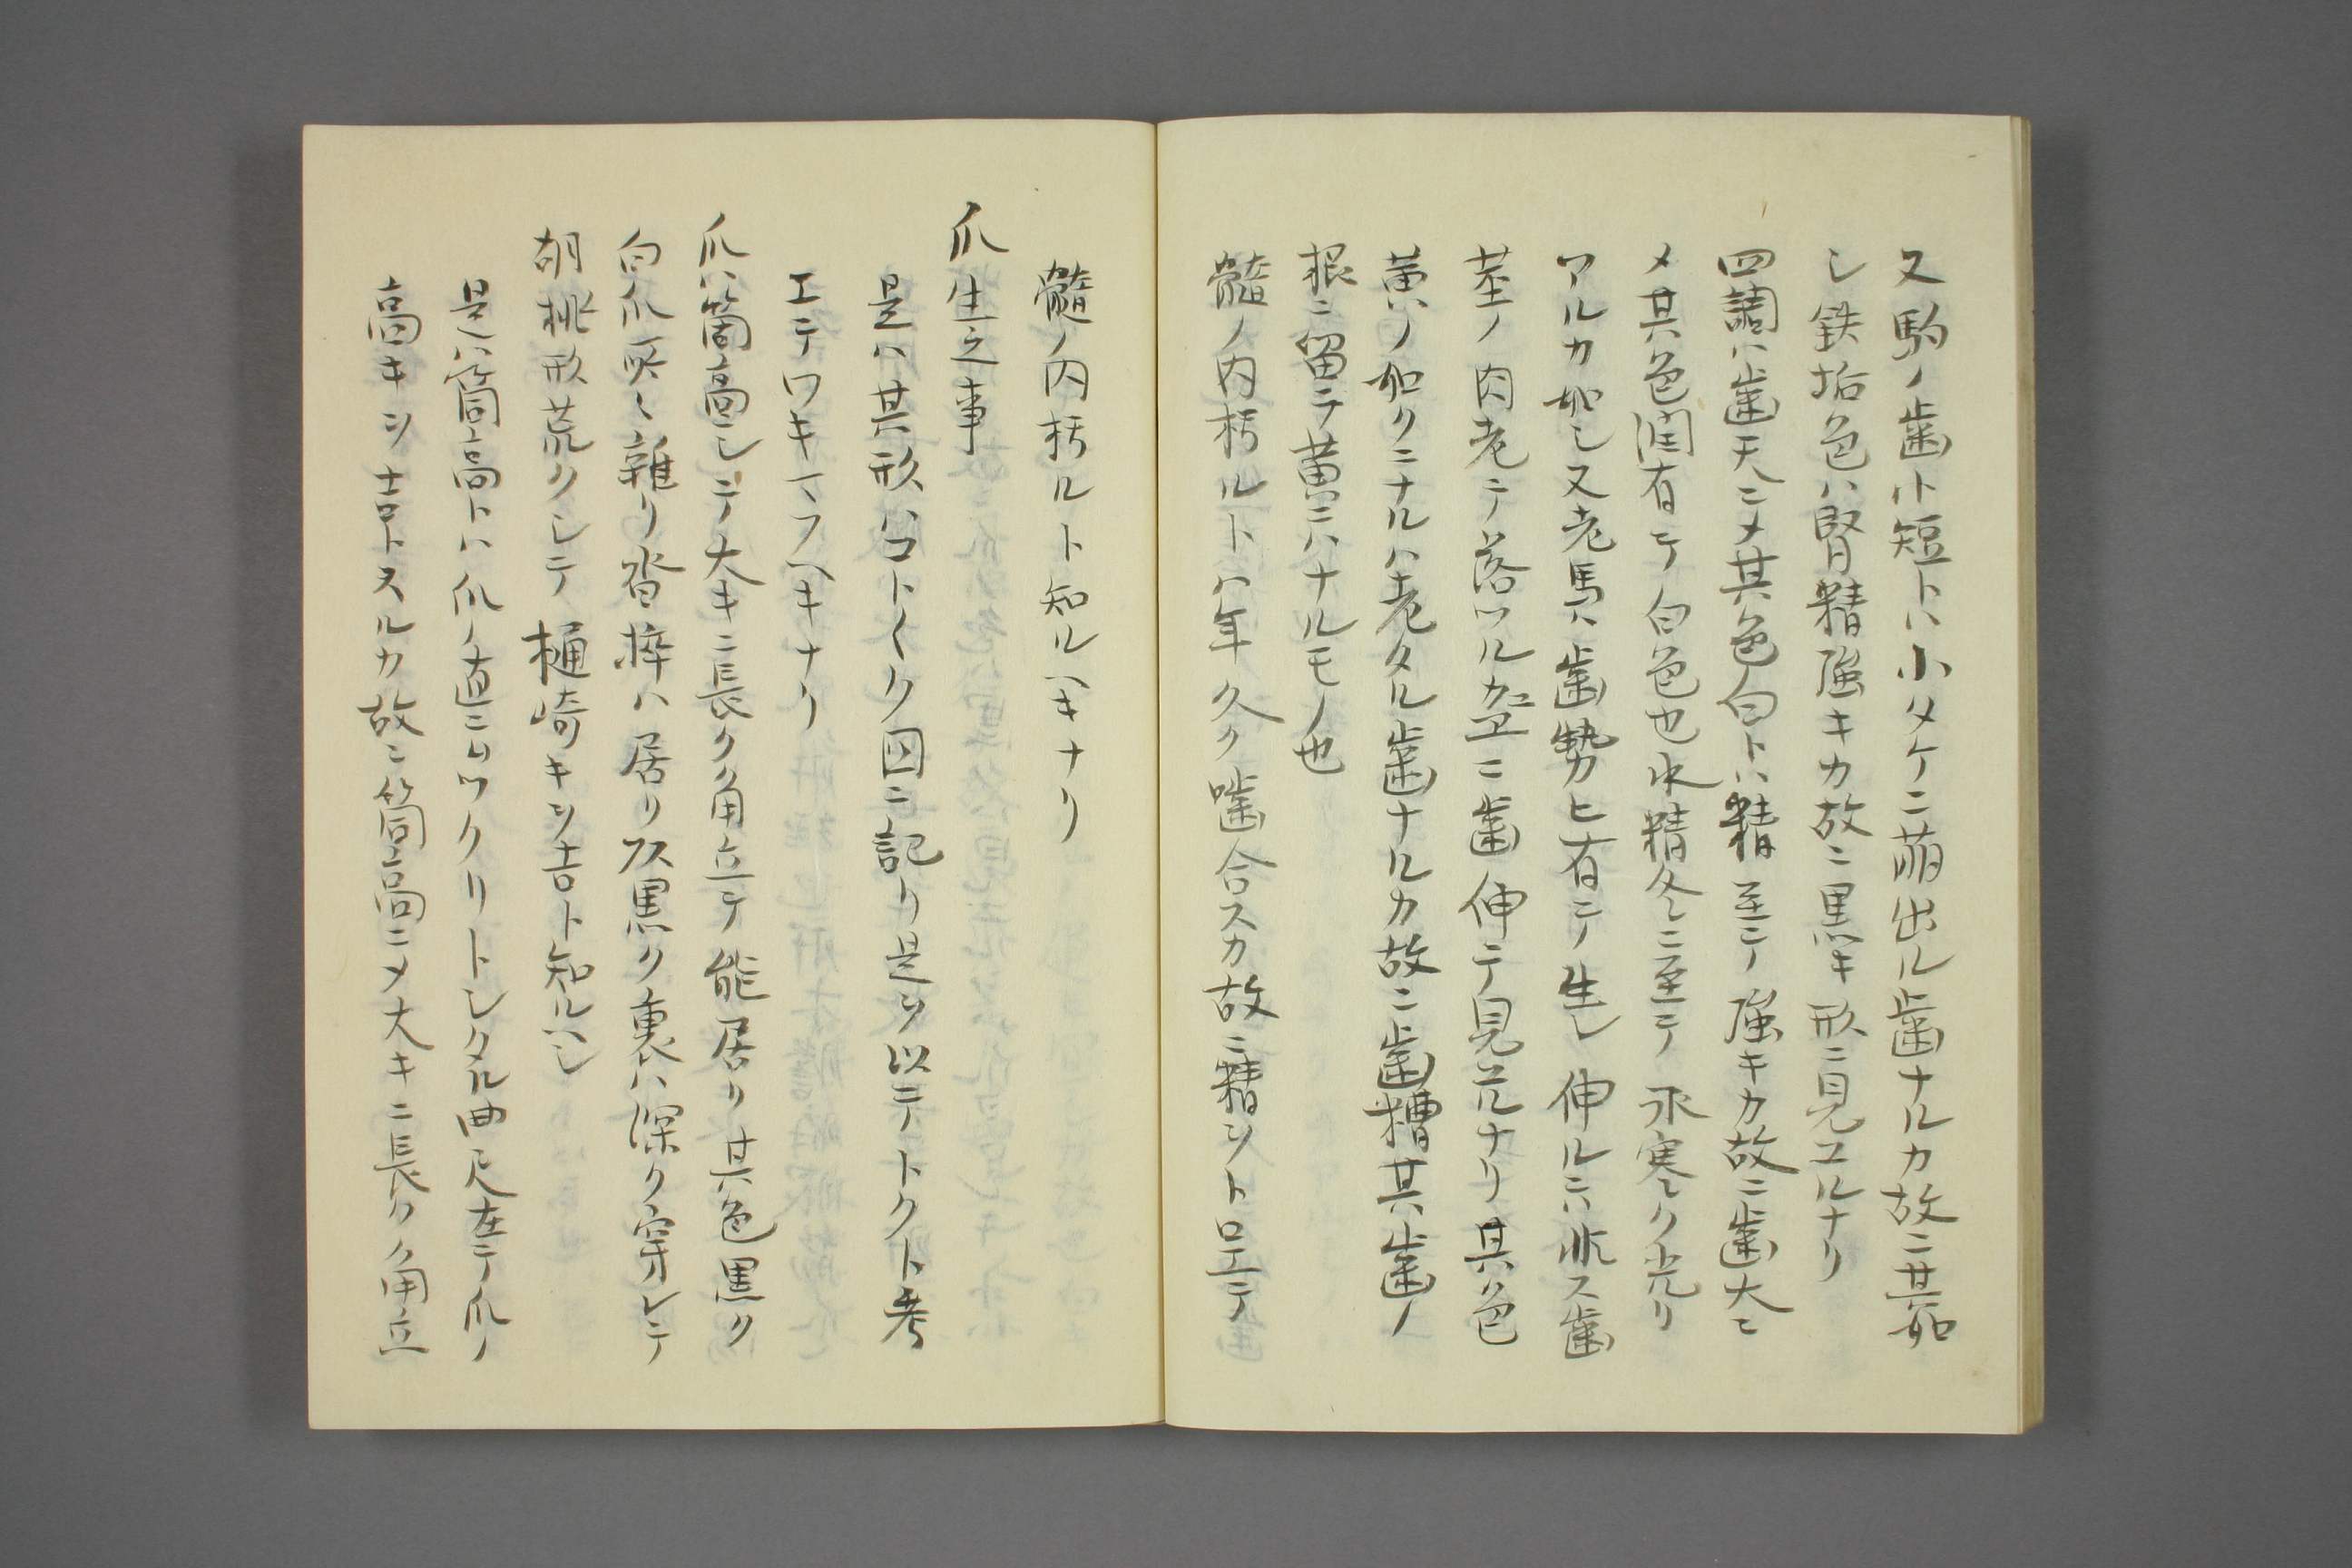 又駒ノ歯小短トハ小メケニ萠出ル歯ナルカ故ニ其如
シ鉄垢色ハ腎精強キカ故ニ黒キ形ニ見エルナリ
四調ハ歯大ニメ其色白トハ精至テ強キカ故ニ歯大ニ
メ其色潤有テ白色也水精冬ニ至テ氷寒ク光リ
アルカ如シ又老馬ハ歯勢ヒ有テ生レ伸ルニハ非ス歯
茎ノ肉老テ落ツルカ上ニ歯伸テ見エルナリ其色
黄ハノ如クニナルハ老タル歯ナルカ故ニ歯糟其歯ノ
根ニ留テ黄ニハナルモノ也
髄ノ内朽ルトハ年久ク噛合スカ故ニ精シト
髄ノ内朽ルト知ルヘキナリ
爪生之事
是ハ其形ハコト〱ク図ニ記リ是ヲ以テトクト考
エテワキマフヘキナリ
爪ハ筒高シテ大キニ長ク角立テ能居リ其色黒ク
白爪灰爪雑リ沓ハ居リ又黒ク裏ハ深ク穿レテ
胡桃形荒クシテ樋崎キヲ吉ト知ルヘシ
是ハ筒高トハ爪ノ直ニツクリトシタル曲尺在テ爪ノ
高キヲ吉トスルカ故ニ筒高ニメ大キニ長ク角立